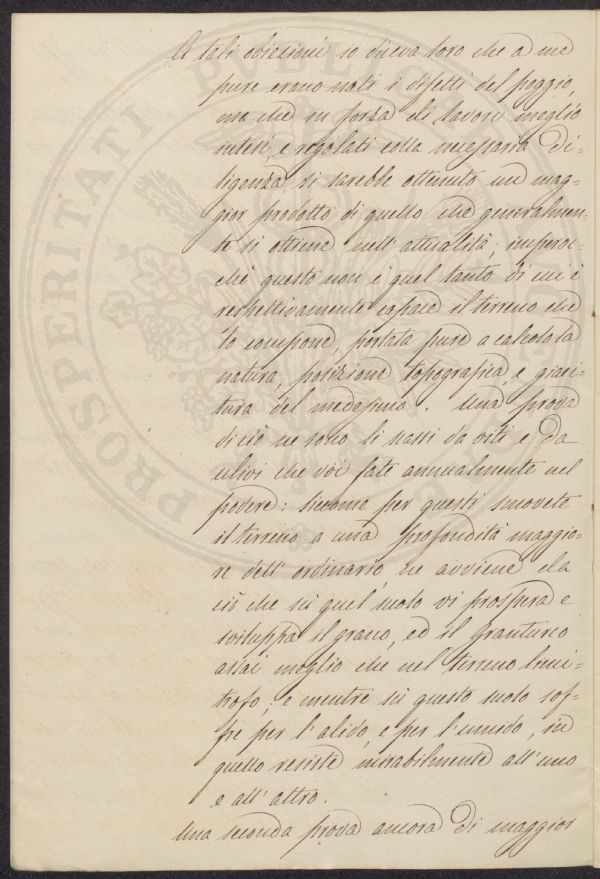 A tali obiezioni io diceva loro che a me
pure erano noti i difetti del poggio,
ma che in forza di lavori meglio
intesi, e regolati colla necessaria di-
ligenza si sarebbe ottenuto un mag-
gior prodotto di quello che generalmen-
te si ottiene nell'attualità; imperoc-
chè questo non è quel tanto di cui è
respettivamente capace il terreno che
lo compone, portata pure a calcolo la
natura, posizione topografica, e giaci-
tura del medesimo. Una prova
di ciò ne sono li nassi da viti e da
ulivi che voi fate annualmente nel
podere: siccome per questi smovete
il terreno a una profondità maggio-
re dell'ordinario, ne avviene da
ciò che su quel suolo vi prospera e
sviluppa il grano, ed il granturco
assai meglio che nel terreno limi-
trofo; e mentre su questo suolo sof-
fre per l'alido, e per l'umido, in
quello resiste mirabilmente all'uno
e all'altro.
Una seconda prova ancora di maggior
PROSPERITATI PUBL